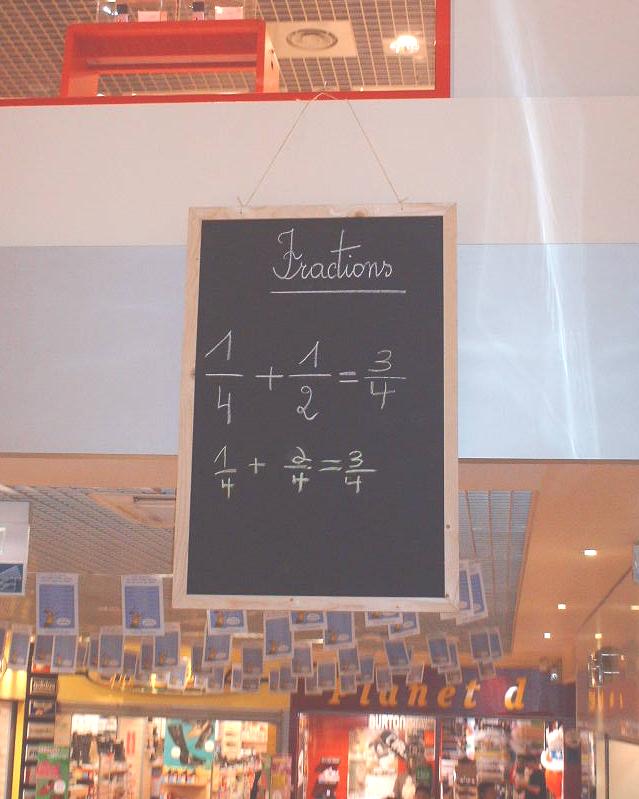 Fractions
1/4 + 1/2 = 3/4
1/4 + 2/4 = 3/4
Planet d
BURTON